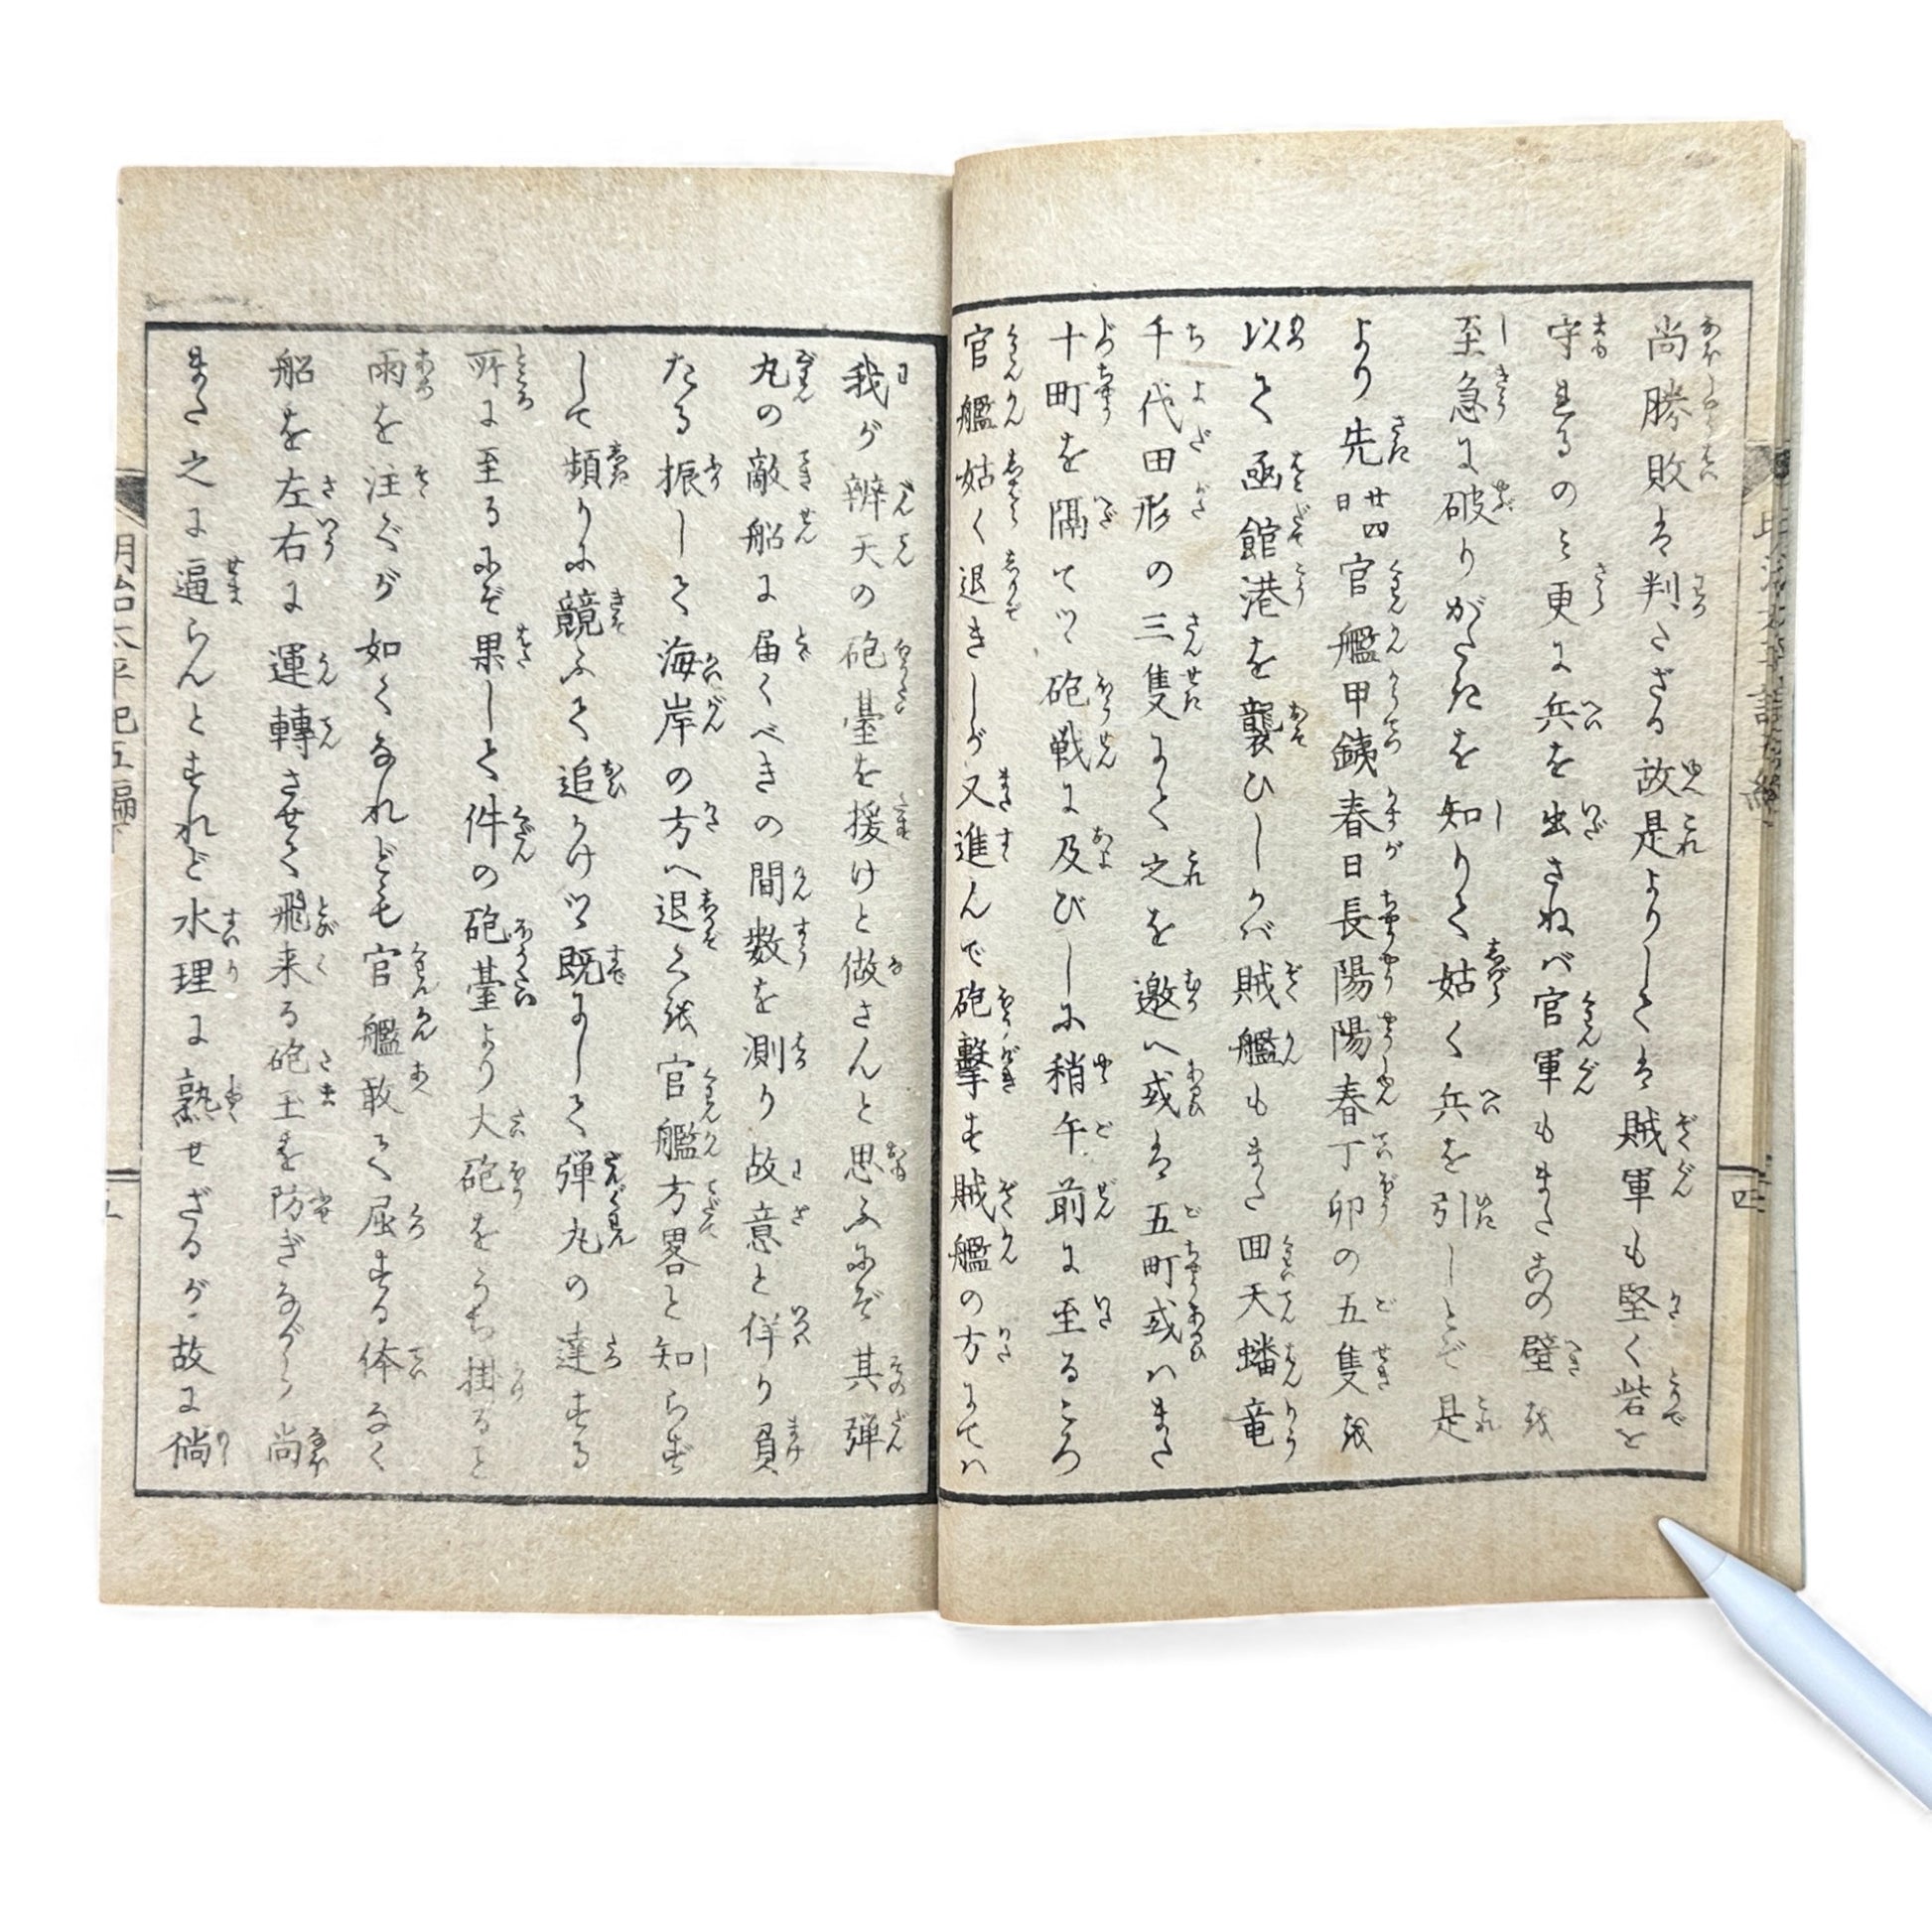 尚勝敗は判たざる故是よりしては賊軍も堅く砦を
守まるのミ更に兵を出さねべ官軍もまたこの壁を
至急に破りがたきを知りて姑く兵を引しとぞ是
より先廿四日官艦甲鉄春日長陽陽春丁卯の五隻を
以て函館港を襲ひしかバ賊艦もまた回天蟠竜
千代田形の三隻にて之を邀へ或は五町或ハまた
十町を隔てツヽ砲戦に及びしに稍午前に至るころ
官艦姑く退きしが又進んで砲撃す賊艦の方にてハ
我が辨天の砲臺を援けと做さんと思ふにぞ其弾
丸の敵船に届くべきの間数を測り故意と佯り負
たる振して海岸の方へ退くを官艦方畧と知らず
して頻りに競ふて追かけツヽ既にして弾丸の達する
所に至るにぞ果して件の砲臺より大砲をうち掛ると
雨を注ぐが如くなれども官艦敢て屈する体なく
船を左右に運轉させて飛来る砲玉を防ぎながら尚
また之に逼らんとすれど水理に熟せざるが故に倘
明治太平記五編
五
四